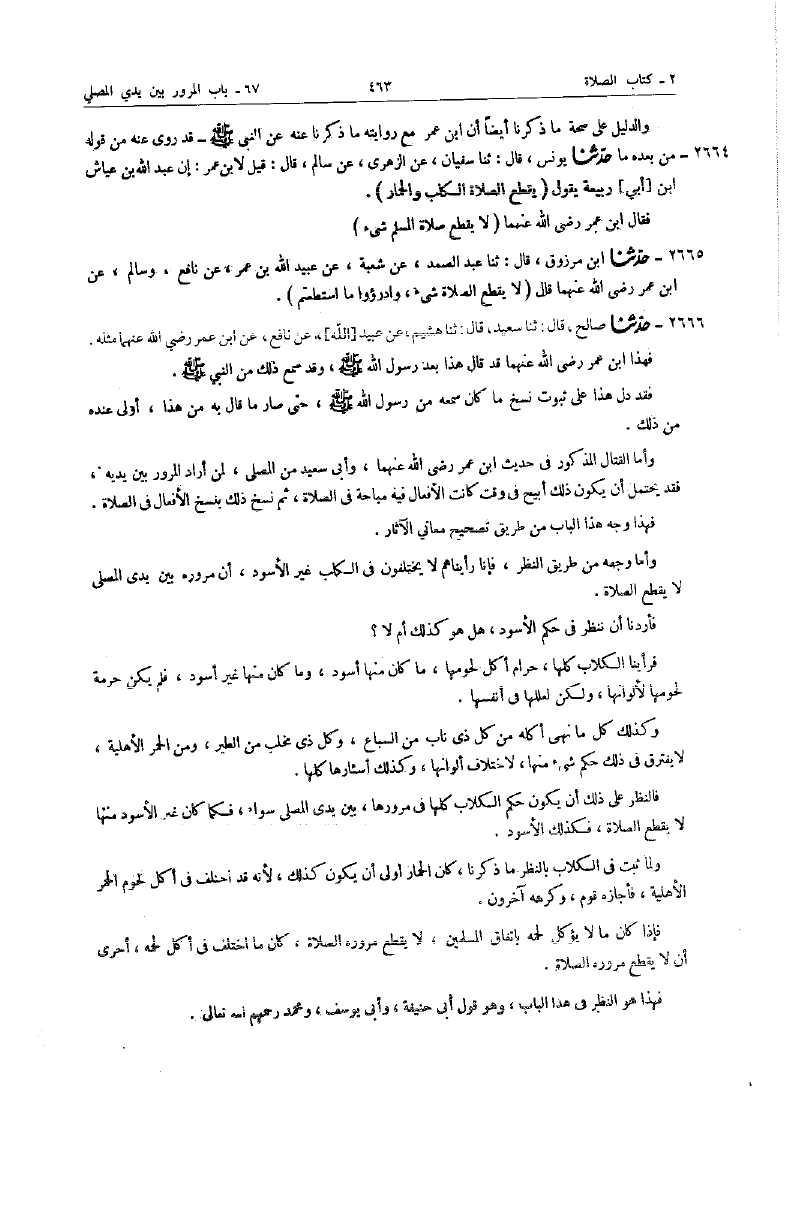 ٢ - كتاب الصلاة ٤٦٣ ٦٧ - باب المرور بين يدي المصلي
والدليل على صحة ما ذكرنا أيضاً أن ابن عمر مع روايته ما ذكرنا عنه عن النبي ﷺ - قد روى عنه من قوله
٢٦٦٤ - من بعده ما حدثنا يونس ، قال : ثنا سفيان ، عن الزهرى ، عن سالم ، قال : قيل لابن عمر : إن عبد الله بن عياش
ابن [أبي] ربيعة يقول ( يقطع الصلاة الكلب والحمار ) .
فقال ابن عمر رضى الله عنهما ( لا يقطع صلاة المسلم شىء )
٢٦٦٥ - حدثنا ابن مرزوق ، قال : ثنا عبد الصمد ، عن شعبة ، عن عبيد الله بن عمر ، عن نافع ، وسالم ، عن
ابن عمر رضى الله عنهما قال ( لا يقطع الصلاة شىء ، وادرؤوا ما استطعتم ) .
٢٦٦٦ - حدثنا صالح ، قال : ثنا سعيد ، قال : ثنا هشيم ، عن عبيد [الله] ، عن نافع ، عن ابن عمر رضي الله عنهما مثله .
فهذا ابن عمر رضى الله عنهما قد قال هذا بعد رسول الله ﷺ ، وقد سمع ذلك من النبي ﷺ .
فقد دل هذا على ثبوت نسخ ما كان سمعه من رسول الله ﷺ ، حتى صار ما قال به من هذا ، أولى عنده
من ذلك .
وأما القتال المذكور فى حديث ابن عمر رضى الله عنهما ، وأبى سعيد من المصلى ، لمن أراد المرور بين يديه ،
فقد يحتمل أن يكون ذلك أبيح فى وقت كانت الأفعال فيه مباحة فى الصلاة ، ثم نسخ ذلك بنسخ الأفعال فى الصلاة .
فهذا وجه هذا الباب من طريق تصحيح معاني الآثار .
وأما وجهه من طريق النظر ، فإنا رأيناهم لا يختلفون فى الكلب غير الأسود ، أن مروره بين يدى المصلى
لا يقطع الصلاة .
فأردنا أن ننظر فى حكم الأسود ، هل هو كذلك أم لا ؟
فرأينا الكلاب كلها ، حرام أكل لحومها ، ما كان منها أسود ، وما كان منها غير أسود ، فلم يكن حرمة
لحومها لألوانها ، ولكن لعللها فى أنفسها .
وكذلك كل ما نهى أكله من كل ذى ناب من السباع ، وكل ذى مخلب من الطير ، ومن الحمر الأهلية ،
لا يفترق فى ذلك حكم شىء منها ، لاختلاف ألوانها ، وكذلك أسئارها كلها .
فالنظر على ذلك أن يكون حكم الكلاب كلها فى مرورها ، بين يدى المصلى سواء ، فكما كان غير الأسود منها
لا يقطع الصلاة ، فكذلك الأسود .
ولما ثبت فى الكلاب بالنظر ما ذكرنا ، كان الحمار أولى أن يكون كذلك ، لأنه قد اختلف فى أكل لحوم الحمر
الأهلية ، فأجازه قوم ، وكرهه آخرون .
فإذا كان ما لا يؤكل لحمه باتفاق المسلمين ، لا يقطع مروره الصلاة ، كان ما اختلف فى أكل لحمه ، أحرى
أن لا يقطع مروره الصلاة .
فهذا هو النظر فى هذا الباب ، وهو قول أبى حنيفة ، وأبى يوسف ، ومحمد رحمهم الله تعالى .